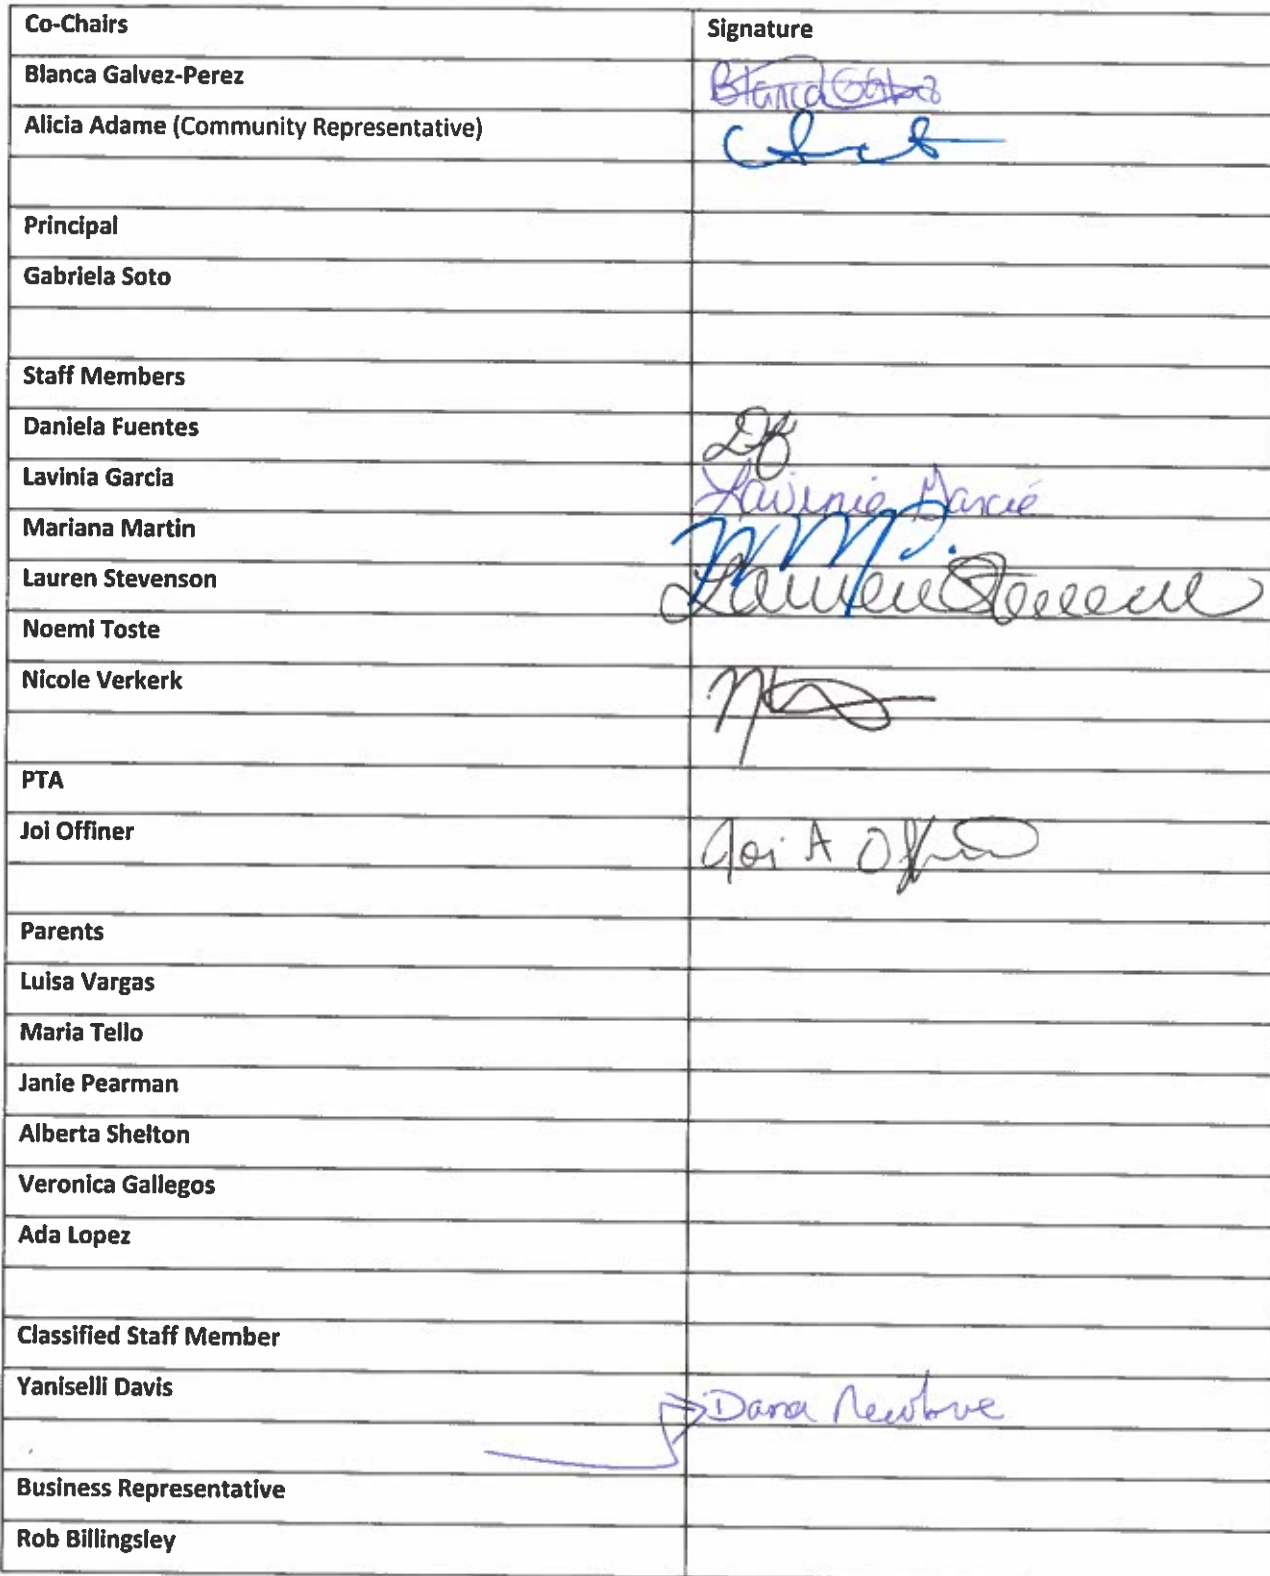 Co-Chairs Signature
Blanca Galvez-Perez
Alicia Adame (Community Representative)
Principal
Gabriela Soto
Staff Members
Daniela Fuentes DF
Lavinia Garcia Lavinia Garcia
Mariana Martin
Lauren Stevenson Lauren
Noemi Toste
Nicole Verkerk
PTA
Joi Offiner Joi A
Parents
Luisa Vargas
Maria Tello
Janie Pearman
Alberta Shelton
Veronica Gallegos
Ada Lopez
Classified Staff Member
Yaniselli Davis Dana
Business Representative
Rob Billingsley